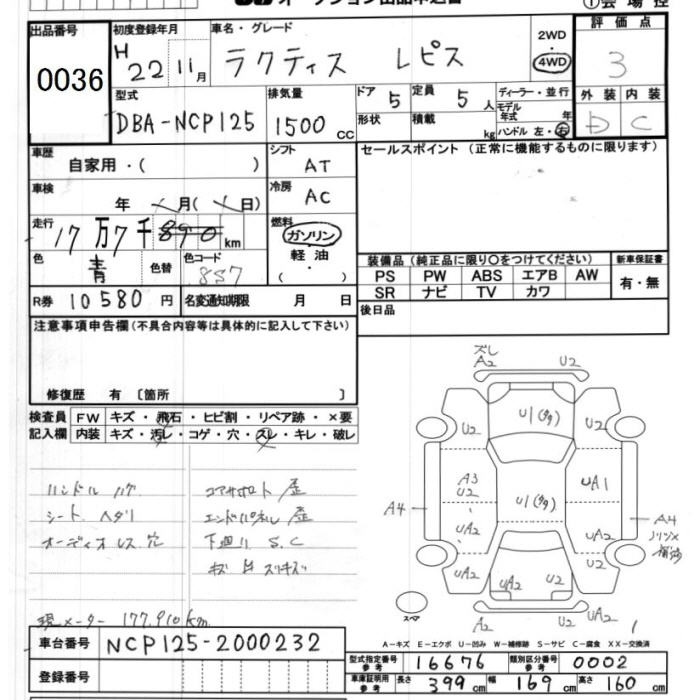 オークション出品申込書
①会場控
出品番号
0036
初度登録年月
H 22 11月
車名・グレード
ラクティス レピス
2WD
4WD
評価点
3
型式
DBA-NCP125
排気量
1500cc
ドア 5
定員 5人
形状
積載 kg
ディーラー・並行
モデル年式 年
ハンドル 左・右
外装 内装
D C
車歴
自家用・( )
シフト
AT
セールスポイント(正常に機能するものに限ります)
車検
年 月( 日)
冷房
AC
走行
17万7千890km
燃料
ガソリン
軽油・
( )
色
青
色替
色コード
8S7
装備品(純正品に限り〇をつけてください)
新車保証書
PS PW ABS エアB AW
有・無
SR ナビ TV カワ
R券 10580円
名変通知期限 月 日
後日品
注意事項申告欄(不具合内容等は具体的に記入して下さい)
修復歴 有〔箇所 〕
検査員記入欄
FW キズ・飛石・ヒビ割・リペア跡・×要
内装 キズ・汚レ・コゲ・穴・スレ・キレ・破レ
ハンドル ハゲ
シート ヘタリ
オーディオレス 穴
コアサポート 歪
エンドパネル 歪
下廻り S.C
現メーター 177,910km
ズレ
A2 U2
U2 U1 U2
A3
U2
UA1
U1
A4
UA2 UA2
A4
UA2 UA2 U2 UA2
スペア
A2 UA2
A-キズ E-エクボ U-凹み W-補修跡 S-サビ C-腐食 XX-交換済
車台番号 NCP125-2000232
登録番号
型式指定番号参考 16676
類別区分番号参考 0002
車庫証明用参考 長さ 399cm 幅 169cm 高さ 160cm